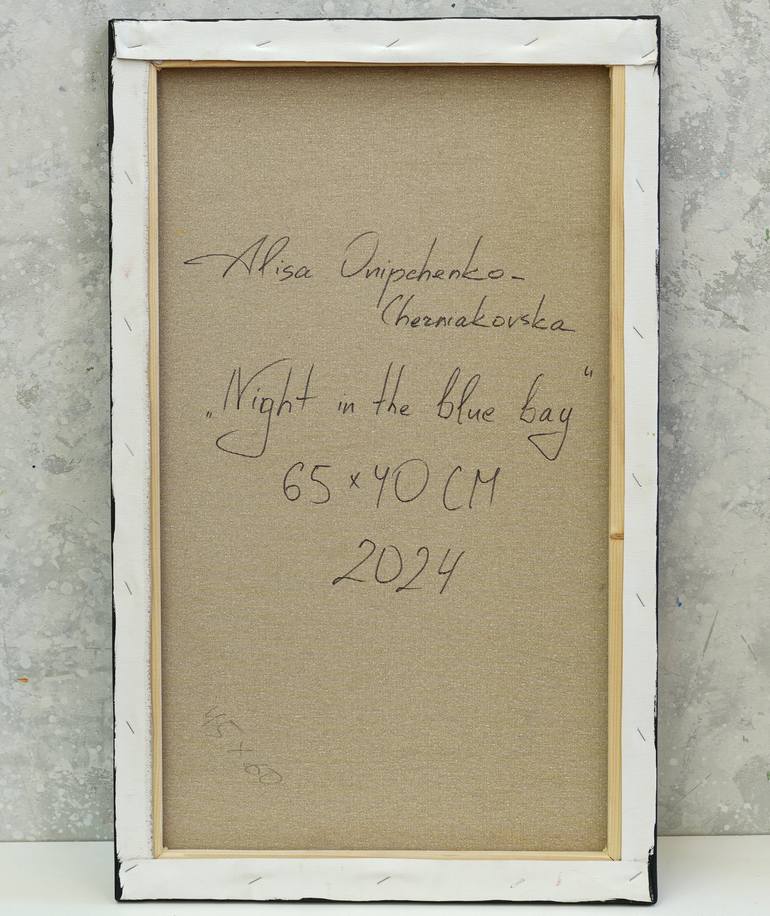 Alisa Onipchenko-
Cherniakovska
„Night in the blue bay“
65 x 40 CM
2024